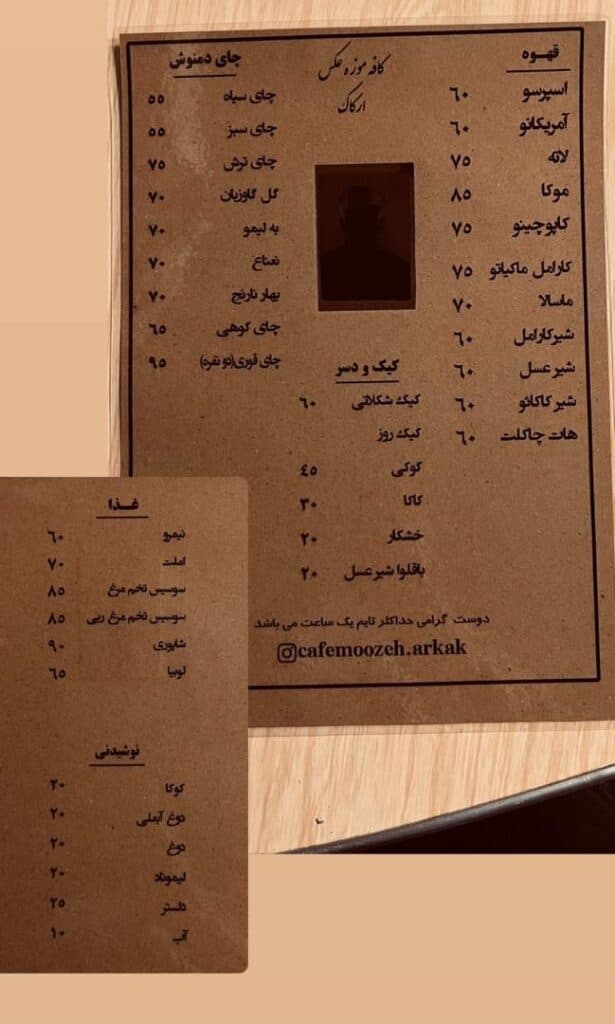 کافه موزه عکس
ارکاک
قهوه
اسپرسو ۶۰
آمریکانو ۶۰
لاته ۷۵
موکا ۸۵
کاپوچینو ۷۵
کارامل ماکیاتو ۷۵
ماسالا ۷۰
شیرکارامل ۶۰
شیر عسل ۶۰
شیر کاکائو ۶۰
هات چاکلت ۶۰
چای دمنوش
چای سیاه ۵۵
چای سبز ۵۵
چای ترش ۷۵
گل گاوزبان ۷۰
به لیمو ۷۰
نعناع ۷۰
بهار نارنج ۷۰
چای کوهی ۶۵
چای قوری(دو نفره) ۹۵
کیک و دسر
کیک شکلاتی ۶۰
کیک روز
کوکی ۴۵
کاکا ۳۰
خشکار ۲۰
باقلوا شیر عسل ۲۰
دوست گرامی حداکثر تایم یک ساعت می باشد
cafemoozeh.arkak
غذا
نیمرو ۶۰
املت ۷۰
سوسیس تخم مرغ ۸۵
سوسیس تخم مرغ ربی ۸۵
شاپوری ۹۰
لوبیا ۶۵
نوشیدنی
کوکا ۲۰
دوغ آبعلی ۲۰
دوغ ۲۰
لیموناد ۲۰
دلستر ۲۵
آب ۱۰